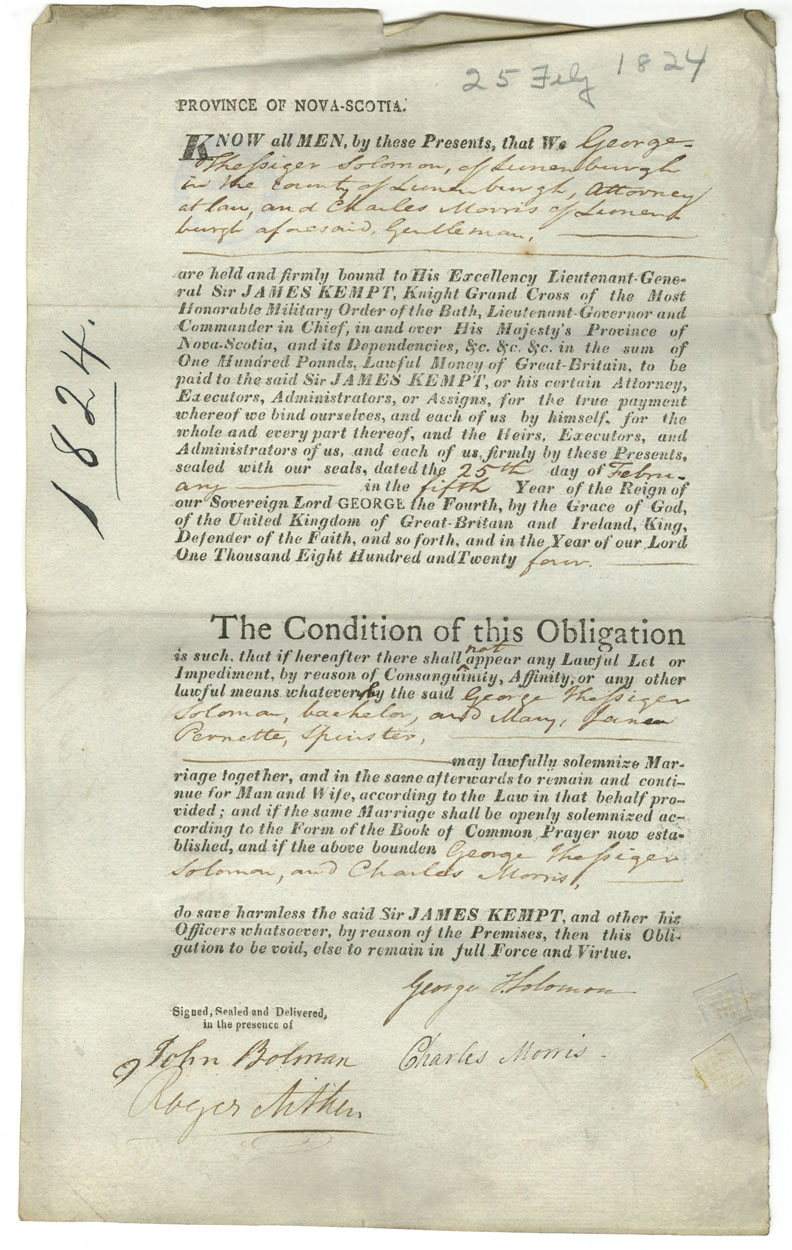 25 Feby 1824
PROVINCE OF NOVA-SCOTIA.
KNOW all MEN, by these Presents, that We George
Thessiger Solomon, of Lunenburgh
in the county of Lunenburgh, Attorney
at law, and Charles Morris of Lunen
burgh aforesaid, Gentleman,
are held and firmly bound to His Excellency Lieutenant-Gene-
ral Sir JAMES KEMPT, Knight Grand Cross of the Most
Honorable Military Order of the Bath, Lieutenant-Governor and
Commander in Chief, in and over His Majesty's Province of
Nova-Scotia, and its Dependencies, &c. &c. &c. in the sum of
One Hundred Pounds, Lawful Money of Great-Britain, to be
paid to the said Sir JAMES KEMPT, or his certain Attorney,
Executors, Administrators, or Assigns, for the true payment
whereof we bind ourselves, and each of us by himself, for the
whole and every part thereof, and the Heirs, Executors, and
Administrators of us, and each of us, firmly by these Presents,
sealed with our seals, dated the 25th day of Febru-
ary in the fifth Year of the Reign of
our Sovereign Lord GEORGE the Fourth, by the Grace of God,
of the United Kingdom of Great-Britain and Ireland, King,
Defender of the Faith, and so forth, and in the Year of our Lord
One Thousand Eight Hundred and Twenty four.
1824.
The Condition of this Obligation
is such, that if hereafter there shall not appear any Lawful Let or
Impediment, by reason of Consanguinity, Affinity, or any other
lawful means whatever, by the said George Thessiger
Solomon, bachelor, and Mary, Jane
Pernette, Spinster,
may lawfully solemnize Mar-
riage together, and in the same afterwards to remain and conti-
nue for Man and Wife, according to the Law in that behalf pro-
vided; and if the same Marriage shall be openly solemnized ac-
cording to the Form of the Book of Common Prayer now esta-
blished, and if the above bounden George Thessiger
Solomon, and Charles Morris,
do save harmless the said Sir JAMES KEMPT, and other his
Officers whatsoever, by reason of the Premises, then this Obli-
gation to be void, else to remain in full Force and Virtue.
George T. Solomon
Signed, Sealed and Delivered,
in the presence of
John Bolman Charles Morris
Roger Aitken